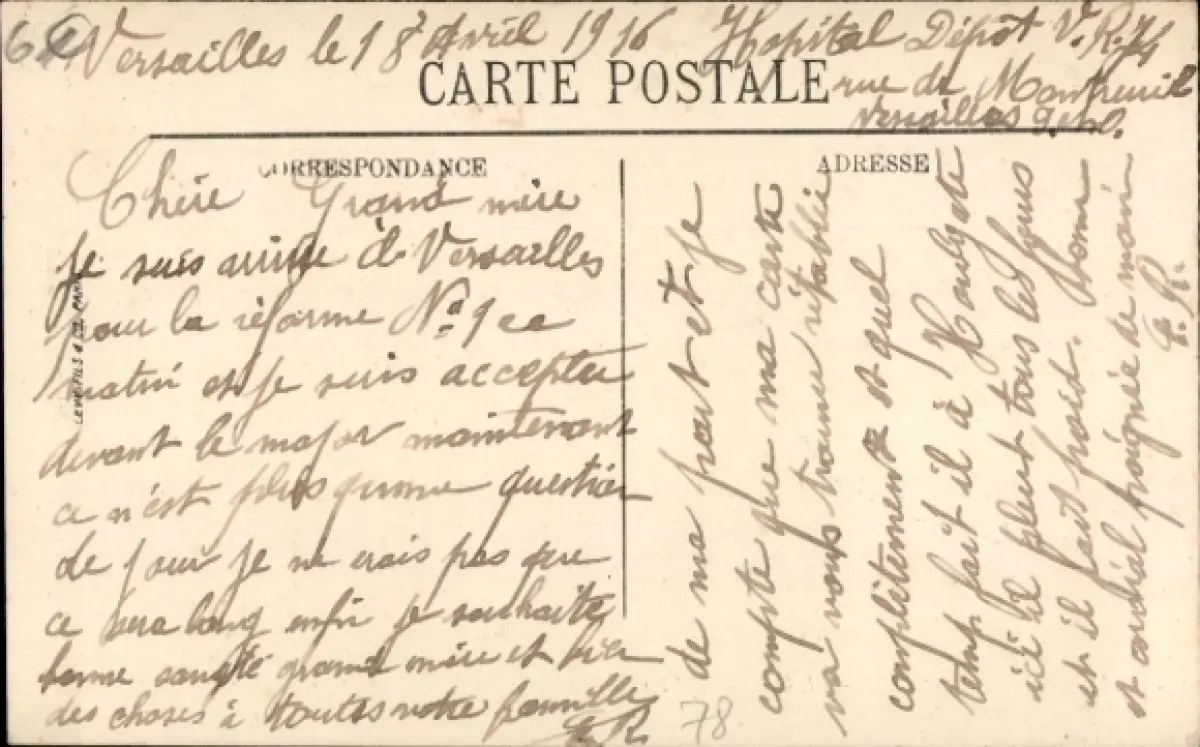 Versailles le 18 Avril 1916 Hopital Dépot V.R. 74
rue de Montreuil
Versailles
CARTE POSTALE
CORRESPONDANCE
ADRESSE
Chère Grand mère
Je suis arrivée à Versailles
pour la réforme No 1 ce
matin et je suis accepter
devant le major maintenant
ce n'est plus qu'une question
de jour je ne crais pas que
ce sera long enfin je souhaite
bonne santé grand mère et bien
des choses à toutes votre famille
E.R.
de ma part et je
compte que ma carte
va vous trouver rétablie
complètement et quel
temp fait il à Houlgate
ici il pleut tous les jours
et il fait froid. bonne
et cordial poignée de main
E.R.
78